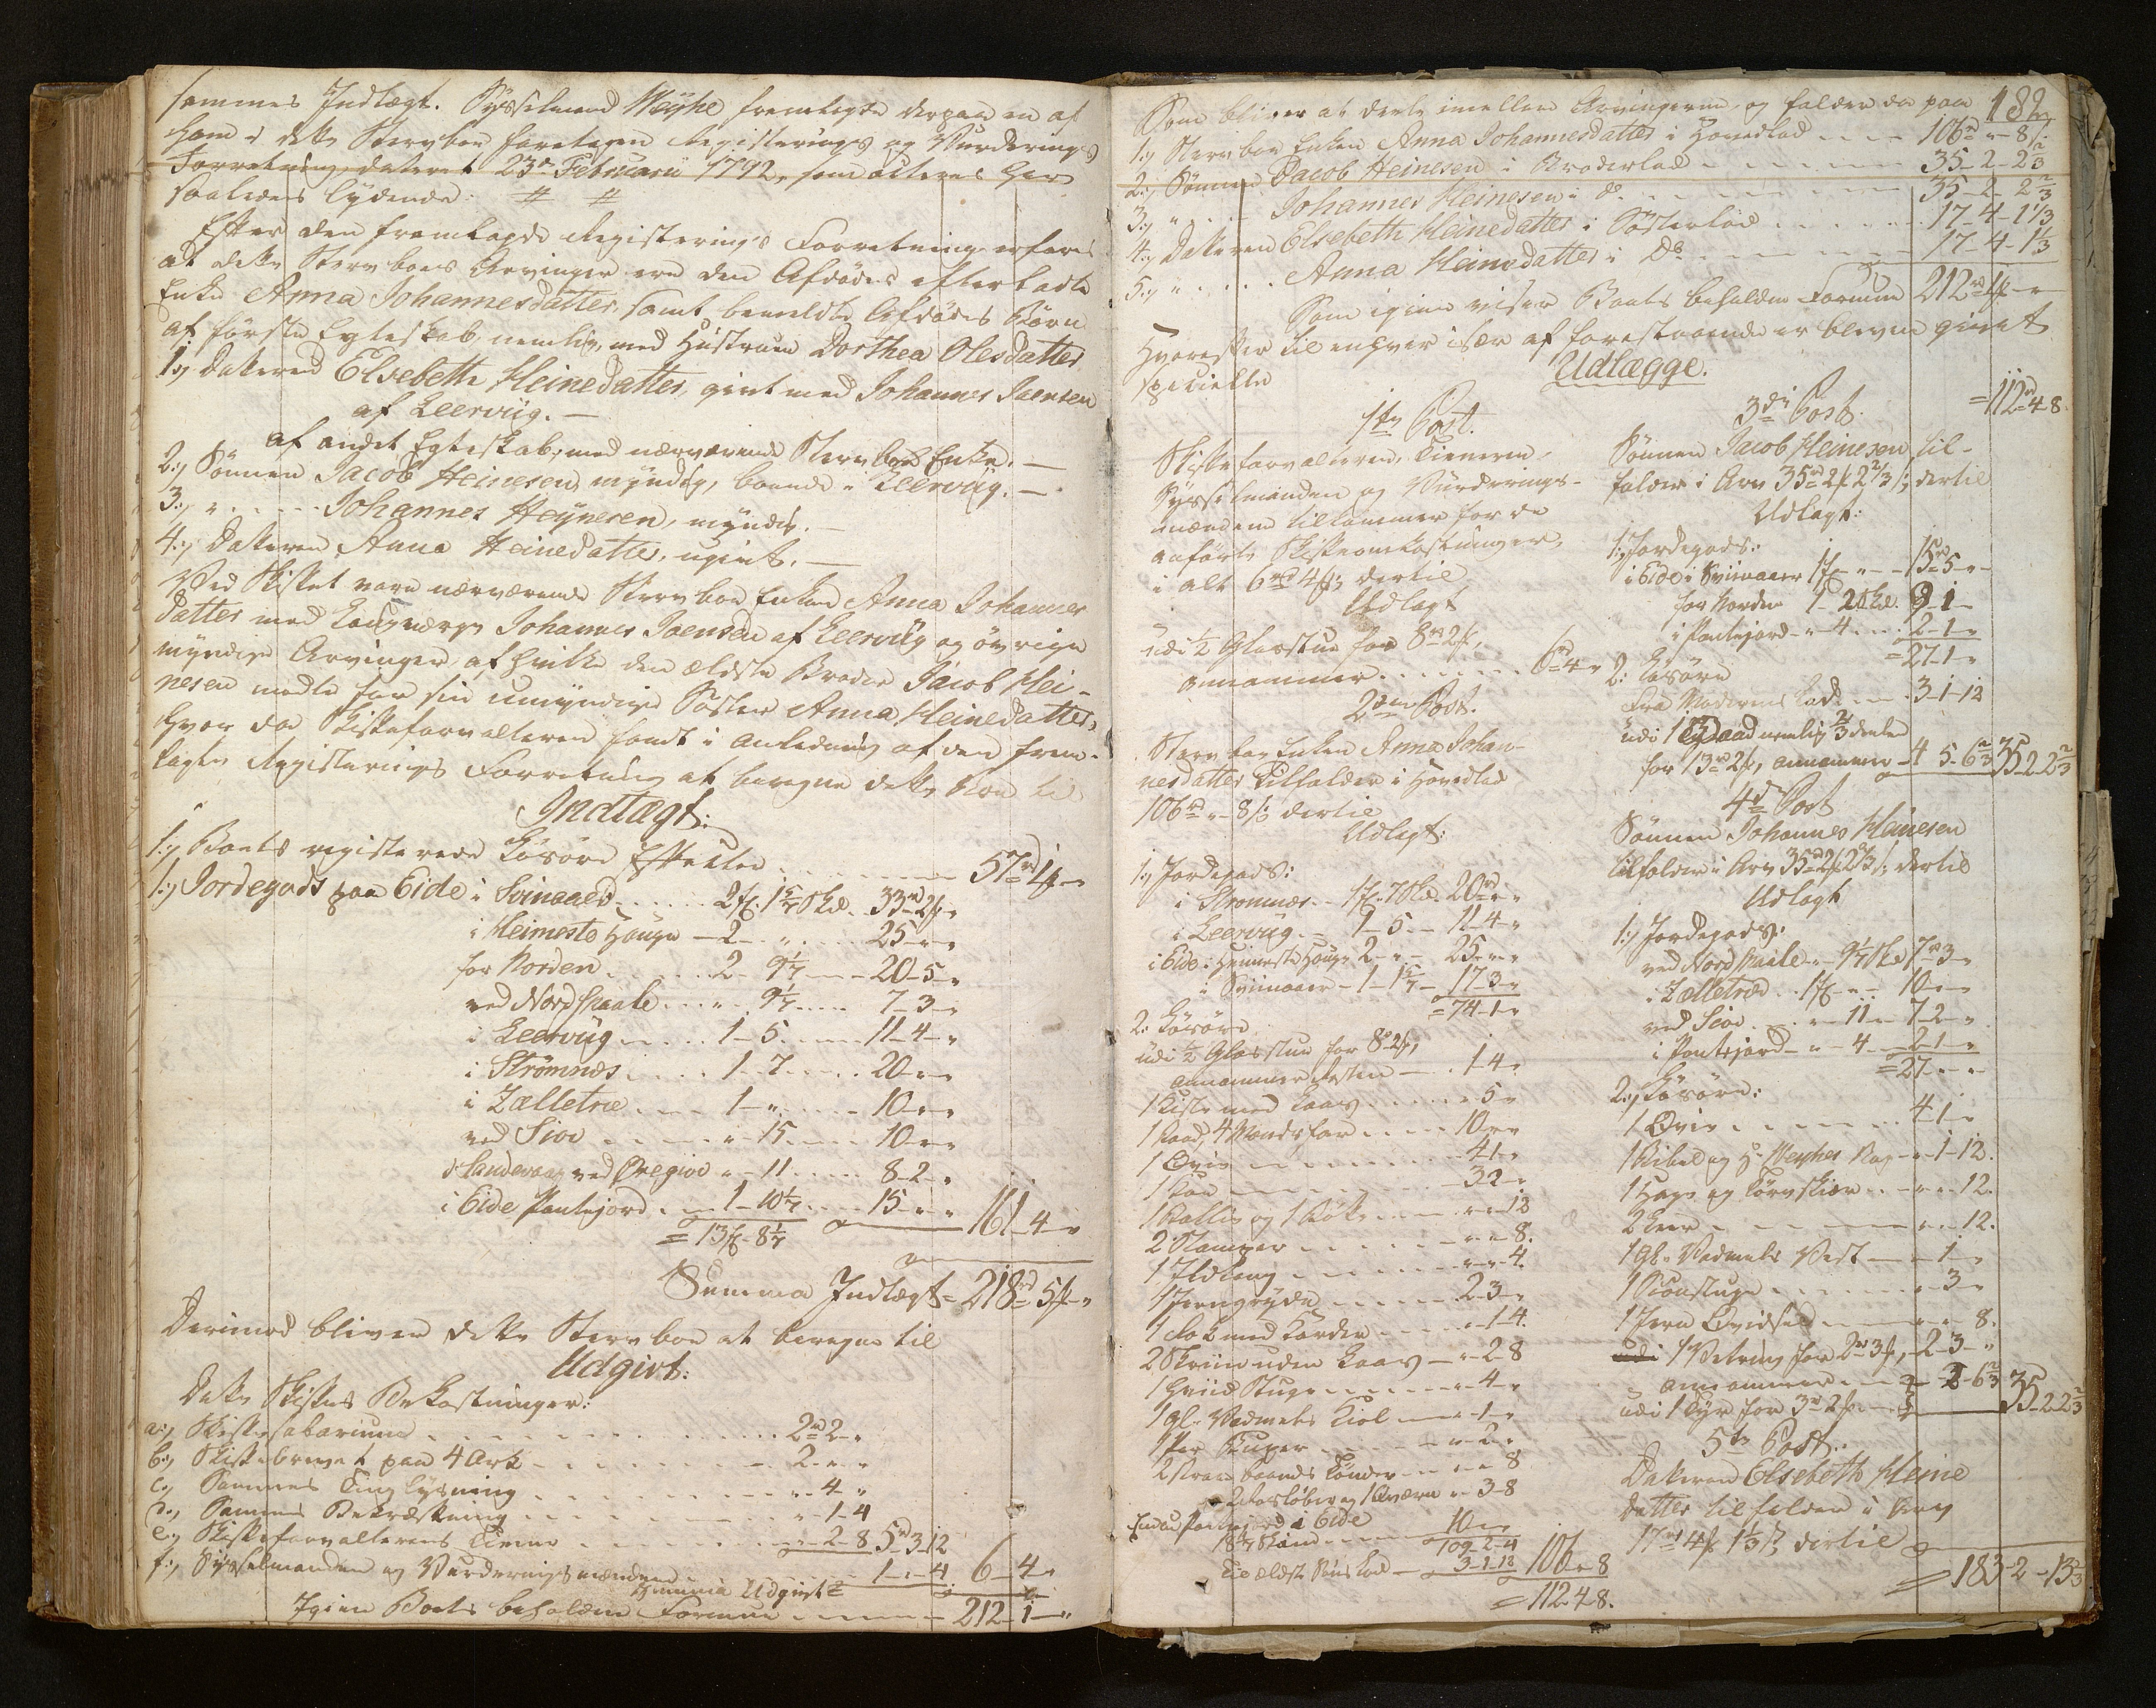 sammes Indtægt. Sysselmand Weyhe fremlagde derpaa en af
ham i dette Sterboe foretagen Registerings og Vurderings
Forretning, dateret 23de Februarii 1792, som acteres her
saaledes lydende: # #
Efter den fremlagde Registerings Forretning erfares
at dette Sterboes Arvinger ere den Afdødes efterladte
Enke Anna Johannesdatter, samt bemeldte Afdødes Børn
af første Egteskab, nemlig, med Hustruen Dorthea Olesdatter
1:, Datteren Elsebeth Heinedatter, givt med Johannes Joensen
af Leervüg. —
af andet Egteskab, med nærværende Sterboe Enke. —
2:, Sønnen Jacob Heinesen, myndig, boende i Leervüg. —
3:, " . . . . Johannes Heynesen, myndig. —
4:, Datteren Anna Heinedatter, ugivt. —
Ved Skiftet vare nærværende Sterboe Enken Anna Johannes
datter med Laugværge Johannes Joensen af Leervüg og øvrige
myndige Arvinger, af hvilke den ældste Broder Jacob Hei-
nesen mødte for sin umyndige Søster Anna Heinedatter,
hvor da Skifteforvalteren fandt i Anledning af den frem-
lagte Registerings Forretning at beregne dette Boe til
Indtægt:
1:, Boets registerede Løsøre Effecter . . . . 57rd 1ß "
1:, Jordegods paa Eide i Svinaaer . . . 2ß. 1 5/7 Skd. 33rd 2ß "
i Heimeste Hauge — 2 — " . . . 25 - " "
for Norden . . . . 2 - 9 1/7 — 20 - 5 - "
ved Nordskaale . . . " - 9 1/7 . . . 7 - 3 - "
i Leervüg . . . 1 - 5 . . . 11 - 4 - "
i Strømnæs . . . 1 - 7 . . . 20 - " "
i Zælletræ . . . 1 - " . . . 10 - " "
ved Siov . . . " - 15 . . . 10 - " "
i Sandevaag ved Øregiov " - 11 . . . 8 - 2 - "
i Eide Pantejord . . . 1 - 10 4/7 . . . 15 - " " 161 - 4 - "
= 13ß - 8 1/7
Summa Indtægt = 218rd 5ß - "
Derimod bliver dette Sterboe at beregne til
Udgivt:
Dette Skiftes Bekostninger:
a:, Skiftesalarium . . . 2rd 2 - "
b:, Skiftebrevet paa 4 Ark . . . 2 - " "
c:, Sammes Tinglysning . . . " - 4 - "
d:, Sammes Bekræftning . . . " - 1 - 4
e:, Skifteforvalterens Tiener . . . " - 2 - 8 5rd 3 - 12
f:, Sysselmanden og Vurderingsmændene . . . 1 - " - 4 6 - 4 - "
Summa Udgivt =
Igien Boets beholdne Formue . . . 212 - 1 - "
182
Som bliver at deele imellem Arvingerne og falder da paa
1:, Sterboe Enken Anna Johannesdatter i Hovedlod . . . 106rd " - 8ß
2:, Sønnen Jacob Heinesen i Broderlod . . . 35 - 2 - 2 2/3
3:, " . . . Johannes Heinesen i do . . . 35 - 2 - 2 2/3
4:, Datteren Elsebeth Heinedatter i Søsterlod . . . 17 - 4 - 1 1/3
5:, " . . . Anna Heinedatter i Do . . . 17 - 4 - 1 1/3
Som igien viser Boets beholdne Formue 212rd 1ß "
Hvorefter til enhver især af forestaaende er bleven giort
specielle Udlægge.
1ste Post.
Skifteforvalteren, Tieneren,
Sysselmanden og Vurderings-
mændene tilkommer for de
anførte Skifteomkostninger,
i alt 6rd 4ß; dertil
Udlagt
udi 1/2 Glasstue for 8rd 2ß,
annammer . . . 6rd 4 "
2den Post.
Sterboe Enken Anna Johan-
nesdatter tilfalder i Hovedlod
106rd " - 8ß dertil
Udlagt:
1:, Jordegods:
i Strømnæs . . 1ß. 7 Skd. 20rd " "
i Leervüg . . 1 - 5 . . 11 - 4 - "
i Eide: Heimeste Hauge 2 - " - 25 - " "
i Sviinaaer - 1 - 1 5/7 - 17 - 3 - "
= 74 - 1 - "
2: Løsøre
udi 1/2 Glasstue for 8rd 2ß,
annammer Resten . . . 1 - 4 "
1 Kiste med Laas . . . " - 5 "
1 Baad, 4 Mandsfar . . . 10 - " "
1 Qvie . . . 4 - 1 - "
1 Koe . . . 3 - 2 - "
1 Kallis og 1 Bøtte . . . " - " - 12
2 Stamper . . . " - " - 8.
1 Ildtang . . . " - " - 4.
1 Jerngryde . . . 2 - 3 - "
1 Rok med Karder . . . " - 1 - 4.
2 Skriin uden Laas — " - 2 - 8
1 Hviid Stuge . . . " - 4 - "
1 gl. Vadmels Kiol . . . " - 1 - "
1 Par . . . " - 2 - "
2 baands Tønder . . . " - " - 8
og 1 Qværn " - 3 - 8
Endnu Pantejord i Eide
18 4/7 Skind . . . 10 - " "
109 - 2 - 4
til ældste Søns Lod — 3 - 1 - 12 106 " - 8
= 112 - 4 - 8.
3die Post.
= 112rd 4 - 8
Sønnen Jacob Heinesen til-
falder i Arv 35rd 2ß 2 2/3 ß; dertil
Udlagt:
1:, Jordegods:
i Eide i Sviinaaer 1ß - " - 15rd 5 - "
for Norden 1 - 20 Skd. 9 - 1 -
i Pantejord - " - 4 . . . 2 - 1 - "
= 27 - 1 - "
2: Løsøre
fra Moderens Lod . . . 3 - 1 - 12
udi 1 Baad nemlig 2/3 deele
for 13rd 2ß, annammer - 4 - 5 - 6 2/3 35 - 2 - 2 2/3
4de Post
Sønnen Johannes Heinesen
tilfalder i Arv 35rd 2ß 2 2/3 ß; dertil
Udlagt
1:, Jordegods:
ved Nordskaale " - 9 1/7 Skd 7rd 3 - "
i Zælletræ . . 1ß - " . . 10 - " "
ved Siov . . . " - 11 - 7 - 2 - "
i Pantejord - " - 4 - 2 - 1 - "
= 27 - " "
2:, Løsøre:
1 Qvie . . . 4 - 1 - "
1 Bibel og Hr. Weyhes Bog - " - 1 - 12.
1 Hage og Tørvskiær . . . " - " - 12.
2 Leer . . . " - " - 12.
1 gl. Vadmels Vest — " - 1 - "
1 Roerstuge . . . " - 3 - "
1 Jern . . . " - " - 8.
udi 1 Vetrung for 2rd 3ß, - 2 - 3 - "
annammer . . . " - 2 - 6 2/3
udi 1 Tyr for 3rd 2ß . . . 35 - 2 - 2 2/3
5te Post.
Datteren Elsebeth Heine
datter tilfalder i Arv
17rd 4ß 1 1/3 ß, dertil
= 183 - 2 - 13 1/3